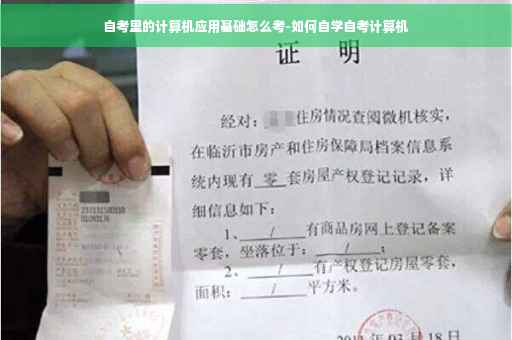 自考里的计算机应用基础怎么考-如何自学自考计算机
证 明
经对：住房情况查阅微机核实，
在临沂市房产和住房保障局档案信息系
统内现有 零 套房屋产权登记记录，详
细信息如下：
1、 / 有商品房网上登记备案
零套，坐落位于： / ；
2、 / 有产权登记房屋零套，
面积： / 平方米。
03月18日